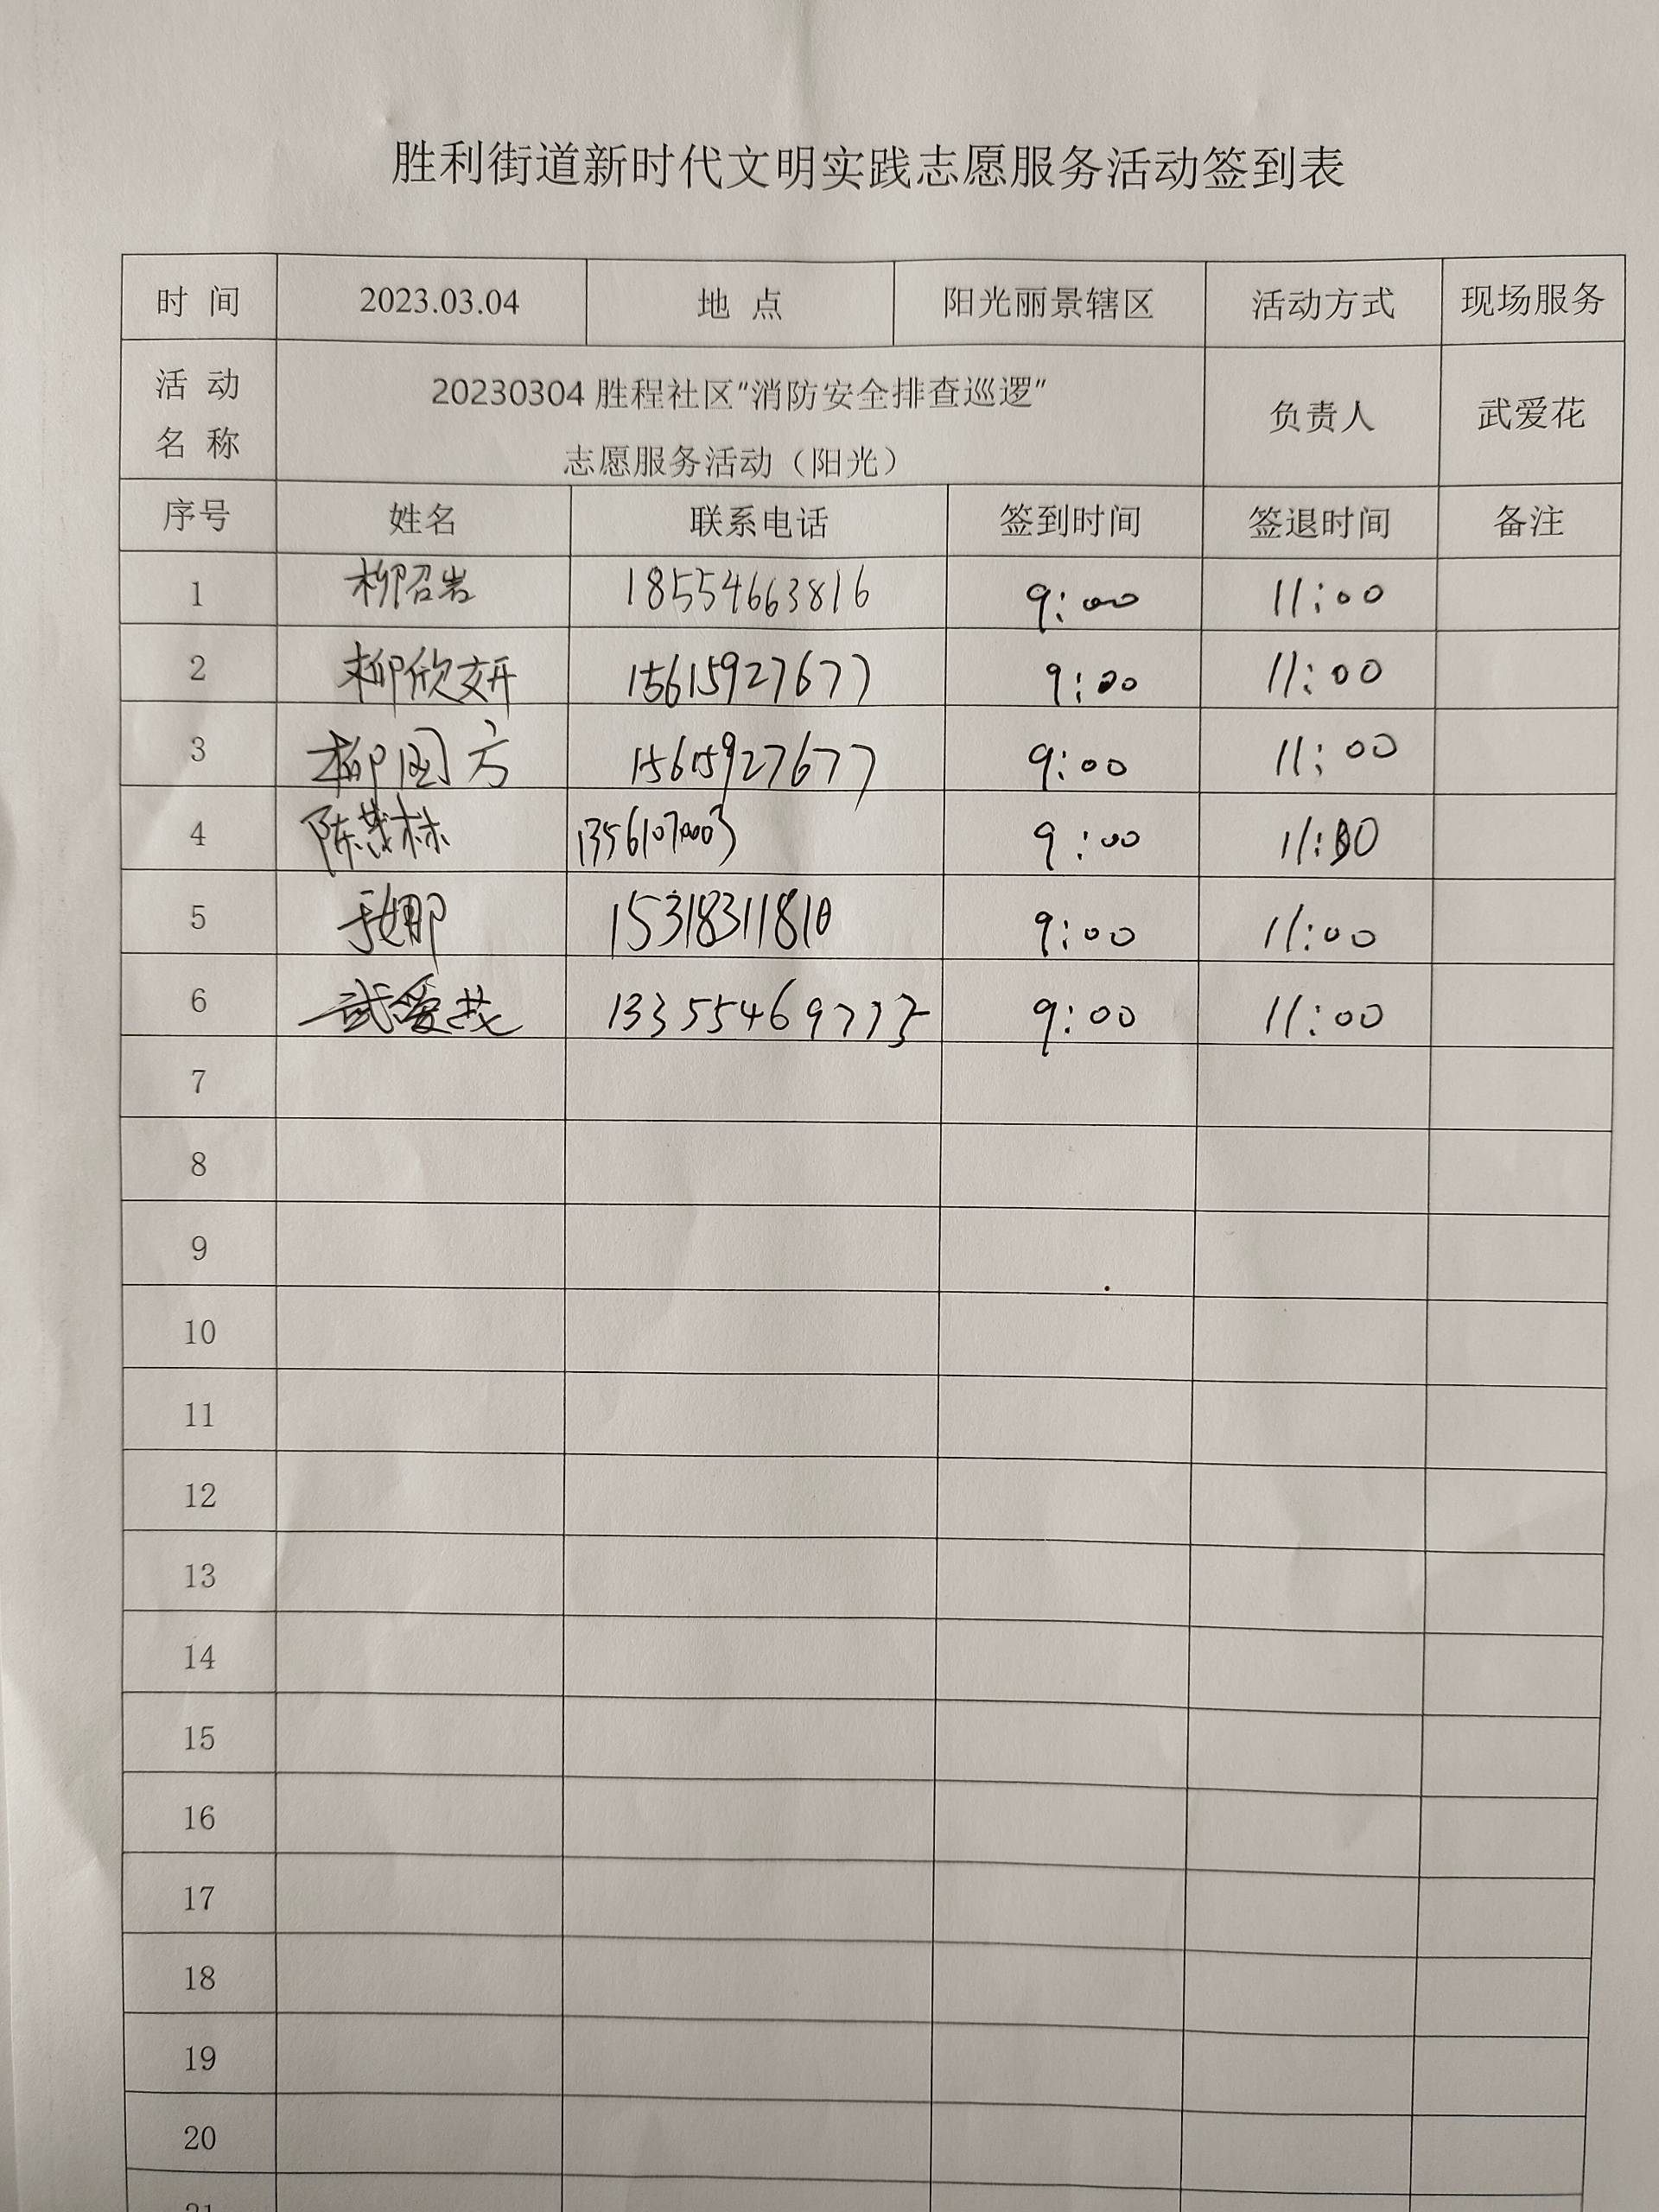 胜利街道新时代文明实践志愿服务活动签到表
时 间 2023.03.04 地 点 阳光丽景辖区 活动方式 现场服务
活 动 名 称 20230304 胜程社区“消防安全排查巡逻” 负责人 武爱花
志愿服务活动（阳光）
序号 姓名 联系电话 签到时间 签退时间 备注
1 柳召岩 18554663816 9:00 11:00
2 柳欣妍 15615927677 9:00 11:00
3 柳国方 15615927677 9:00 11:00
4 陈茂林 13561070003 9:00 11:00
5 于娜 15318311810 9:00 11:00
6 武爱花 13355469775 9:00 11:00
7
8
9
10
11
12
13
14
15
16
17
18
19
20
21